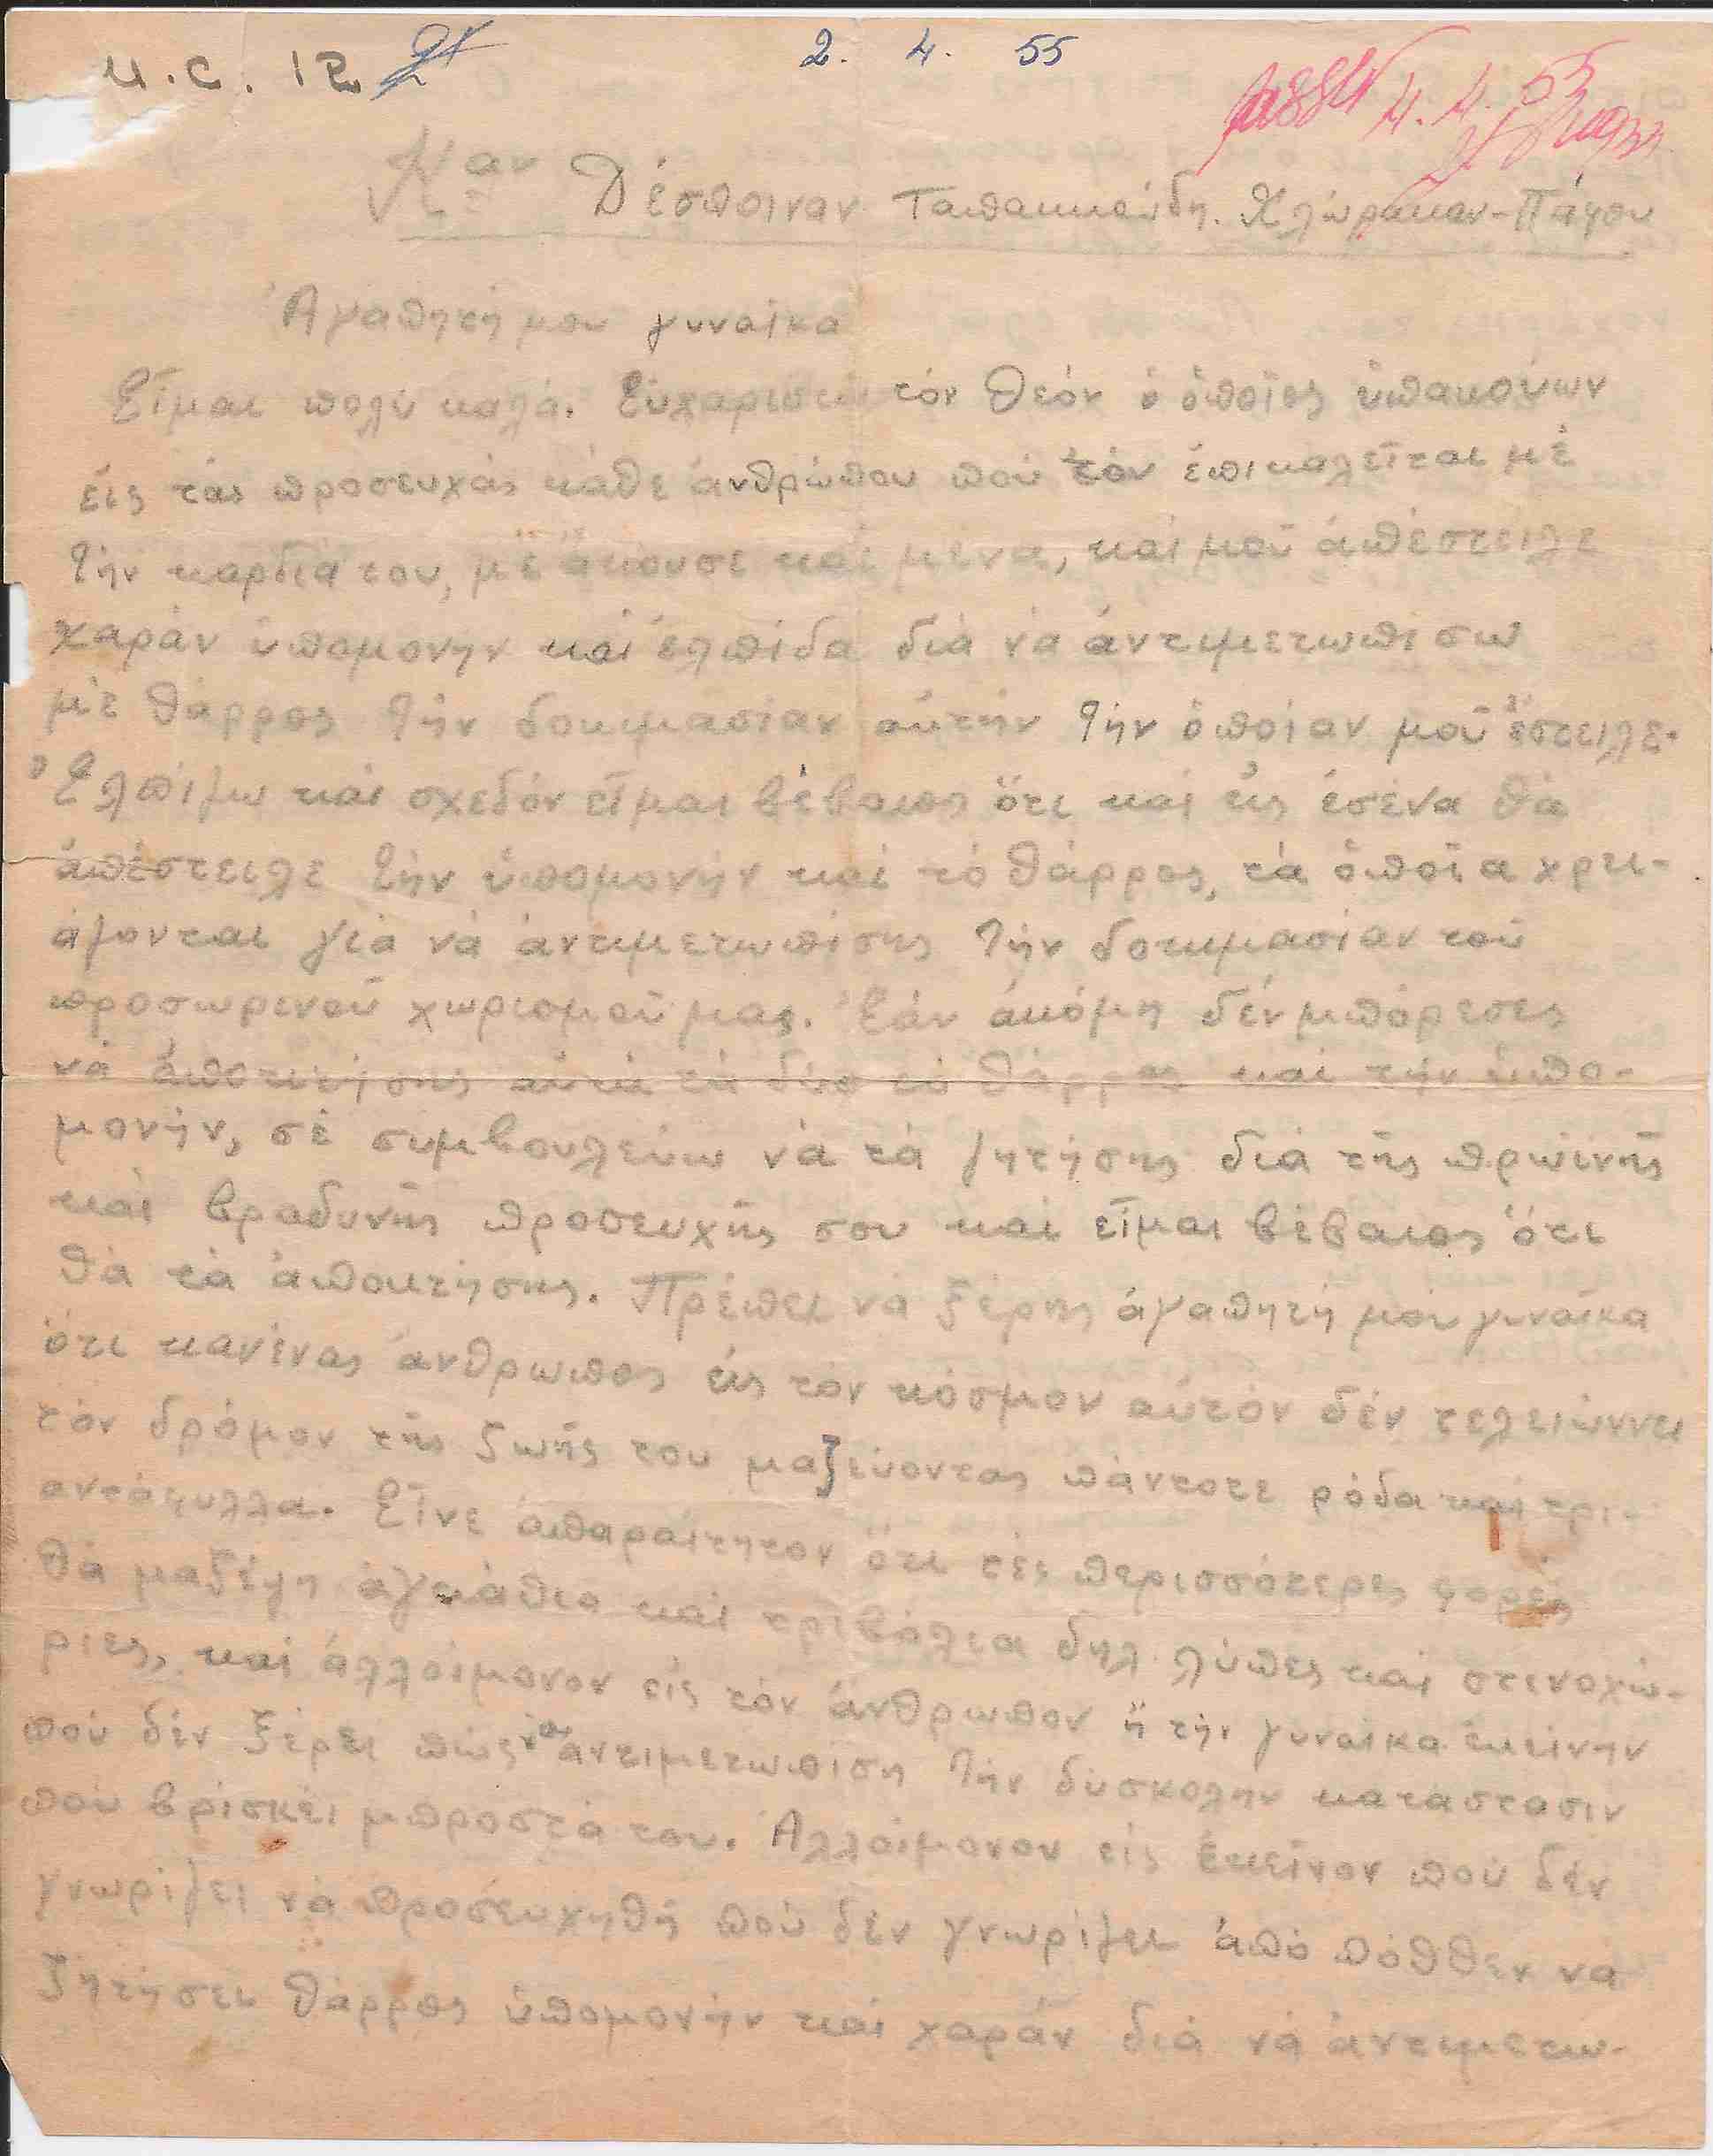 U.C. 12
2. 4. 55
passed 4.4.55
Καν Δέσποιναν Ταπακκούδη. Χλώρακαν-Πάφου
Ἀγαπητή μου γυναίκα
Εἶμαι πολύ καλά. Εὐχαριστῶ τόν Θεόν ὁ ὁποῖος ὑπακούων
εἰς τάς προσευχάς κάθε ἀνθρώπου πού τόν ἐπικαλεῖται μέ
τήν καρδιά του, μέ ἄκουσε καί μένα, καί μοῦ ἀπέστειλε
χαράν ὑπομονήν καί ἐλπίδα διά νά ἀντιμετωπίσω
μέ θάρρος τήν δοκιμασίαν αὐτήν τήν ὁποίαν μοῦ ἔστειλε.
Ἐλπίζω καί σχεδόν εἶμαι βέβαιος ὅτι καί εἰς ἐσένα θά
ἀπέστειλε τήν ὑπομονήν καί τό θάρρος, τά ὁποῖα χρει-
άζονται γιά νά ἀντιμετωπίσης τήν δοκιμασίαν τοῦ
προσωρινοῦ χωρισμοῦ μας. Ἐάν ἀκόμη δέν μπόρεσες
νά ἀποκτήσης αὐτά τά δύο τό θάρρος καί τήν ὑπο-
μονήν, σέ συμβουλεύω νά τά ζητήσης διά τῆς πρωϊνῆς
καί βραδυνῆς προσευχῆς σου καί εἶμαι βέβαιος ὅτι
θά τά ἀποκτήσης. Πρέπει νά ξέρης ἀγαπητή μου γυναίκα
ὅτι κανένας ἄνθρωπος εἰς τόν κόσμον αὐτόν δέν τελειώννει
τόν δρόμον τῆς ζωῆς του μαζεύοντας πάντοτε ρόδα καί τρι-
αντάφυλλα. Εἶνε ἀπαραίτητον ὅτι τές περισσότερες φορές
θά μαζέψη ἀγκάθια καί τριβόλια δηλ. λύπες καί στενοχώ-
ριες, καί ἀλλοίμονον εἰς τόν ἄνθρωπον ἤ τήν γυναίκα ἐκείνην
πού δέν ξέρει πῶς νά ἀντιμετωπίση τήν δύσκολην κατάστασιν
πού βρίσκει μπροστά του. Ἀλλοίμονον εἰς ἐκεῖνον πού δέν
γνωρίζει νά προσευχηθῆ πού δέν γνωρίζει ἀπό πόθθεν νά
ζητήσει θάρρος ὑπομονήν καί χαράν διά νά ἀντιμετω-